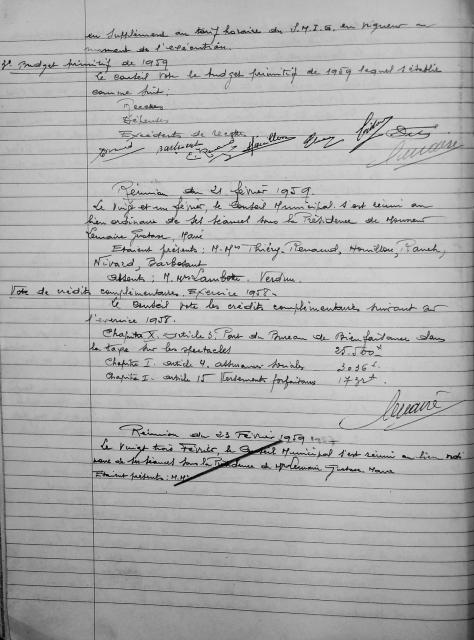 en supplément au tarif horaire du S.M.I.G. en vigueur au
moment de l'exécution.
Budget primitif de 1959
Le conseil vote le budget primitif de 1959 lequel s'établit
comme suit:
Recettes
Dépenses
Excédents de recettes
Lemaire
Réunion du 21 février 1959.
Le vingt et un février, le Conseil Municipal s'est réuni au
lieu ordinaire de ses séances sous la Présidence de Monsieur
Lemaire Gustave, Maire
Etaient présents: M. Mrs Thiéry, Renaud, Hamillon,
Nivard, Barbesant
Absents: M. Mrs Lambote. Verdun.
Vote de crédits complémentaires. Exercice 1958.
Le Conseil vote les crédits complémentaires suivant sur
l'exercice 1958.
Chapitre X. article 3. Part du Bureau de Bienfaisance dans
la taxe sur les spectacles 25.500 f
Chapitre I. article 4. assurances sociales 3036 f
Chapitre I. article 15 Versements forfaitaires
Lemaire
Réunion du 23 Février 1959
Le Vingt trois Février, le Conseil Municipal s'est réuni au lieu ordi
naire de ses séances sous la Présidence de Mr Lemaire Gustave Maire
Etaient présents: M.Mrs